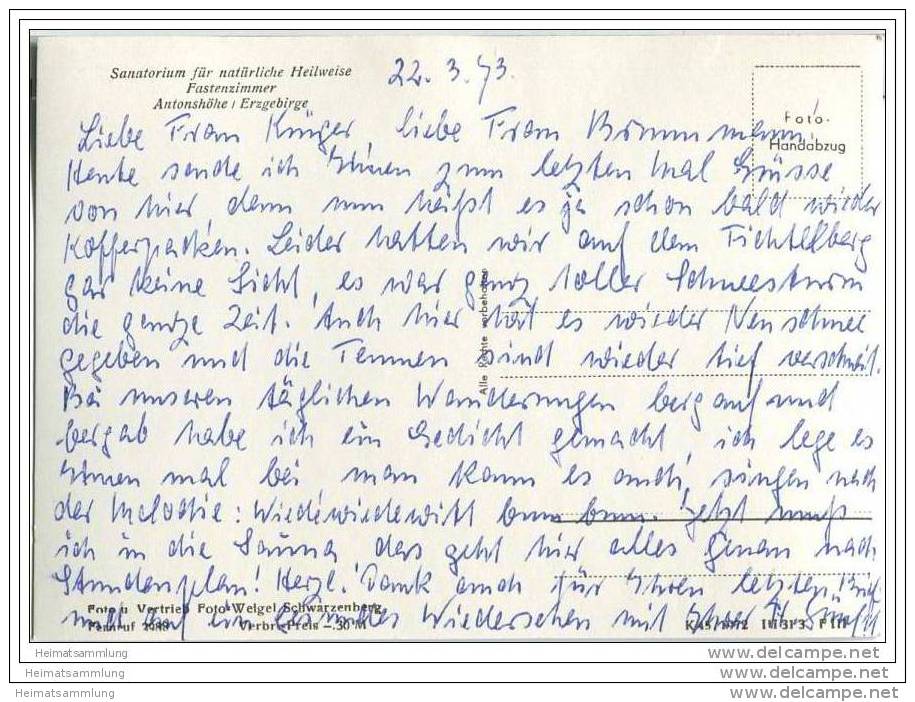 Sanatorium für natürliche Heilweise
Fastenzimmer
Antonshöhe / Erzgebirge
22. 3. 73.
Foto-
Handabzug
Liebe Frau Krüger liebe Frau Brummmann!
Heute sende ich Ihnen zum letzten Mal Grüsse
von hier, denn nun heißt es ja schon bald wieder
Kofferpacken. Leider hatten wir auf dem Fichtelberg
gar keine Sicht, es war ganz toller Schneesturm
die ganze Zeit. Auch hier hat es wieder Neuschnee
gegeben und die Tannen sind wieder tief verschneit.
Bei unseren täglichen Wanderungen bergauf und
bergab habe ich ein Gedicht gemacht, ich lege es
Ihnen mal bei man kann es auch singen nach
der Melodie: Wiedewiedewitt bum bum. Jetzt muß
ich in die Sauna das geht hier alles genau nach
Stundenplan! Herzl. Dank auch für Ihren letzten Brief
und auf ein gesundes Wiedersehen mit Ihnen
Alle Rechte vorbehalten
Foto u Vertrieb Foto-Weigel Schwarzenberg
Fernruf Verbr.-Preis -.30 M
www.delcampe.net
Heimatsammlung
www.delcampe.net
Heimatsammlung